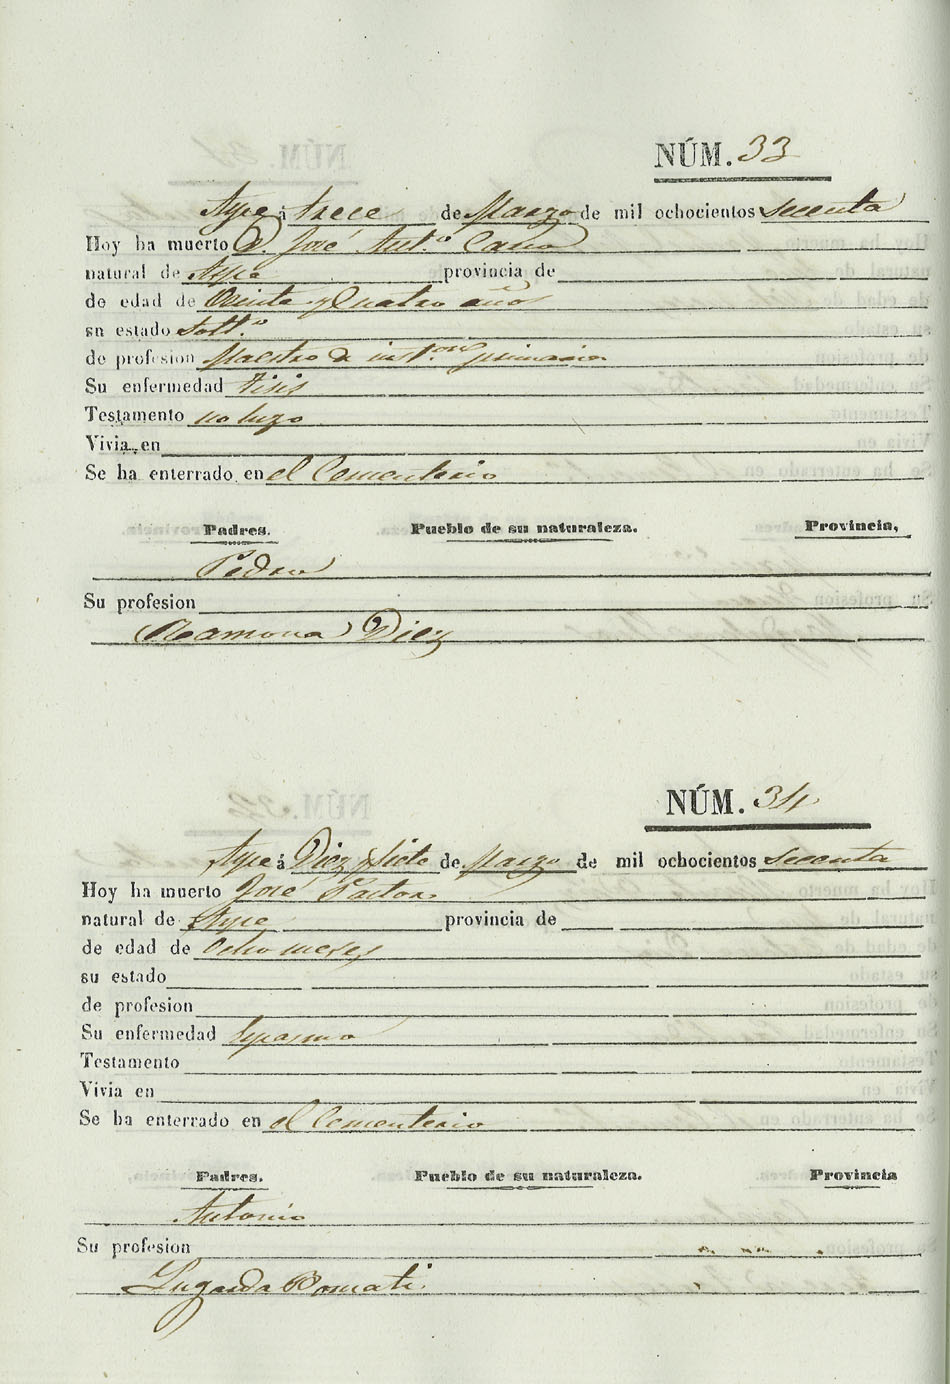 NÚM. 33
Aspe á trece de Marzo de mil ochocientos secenta
Hoy ha muerto D. José Ant.º Caño
natural de Aspe provincia de
de edad de Treinta y Cuatro años
su estado Solt.º
de profesion Maestro de inst.on primaria
Su enfermedad tisis
Testamento no hizo
Vivia en
Se ha enterrado en el Cementerio
Padres. Pueblo de su naturaleza. Provincia,
Pedro
Su profesion
Ramona Diez
NÚM. 34
Aspe á Diez y siete de Marzo de mil ochocientos secenta
Hoy ha muerto José Pastor
natural de Aspe provincia de
de edad de Ocho meses
su estado
de profesion
Su enfermedad Espasmo
Testamento
Vivia en
Se ha enterrado en el Cementerio
Padres. Pueblo de su naturaleza. Provincia
Antonio
Su profesion
Lugarda Bonmati